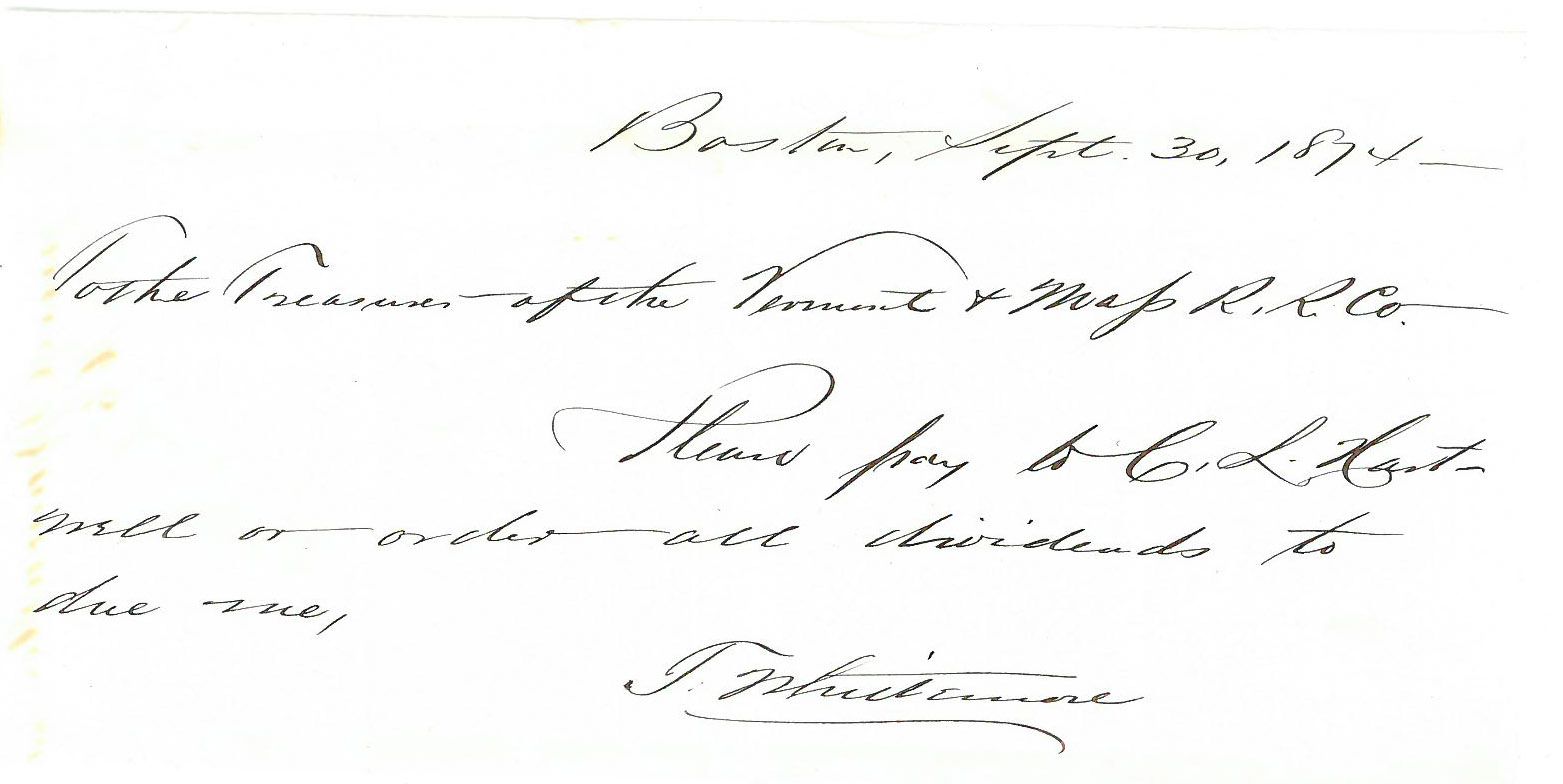 Boston, Sept. 30, 1874
To the Treasurer of the Vermont & Mass R. R. Co.
Please pay to C. L. Hart-
well or order all dividends to
due me,
T. Whittemore